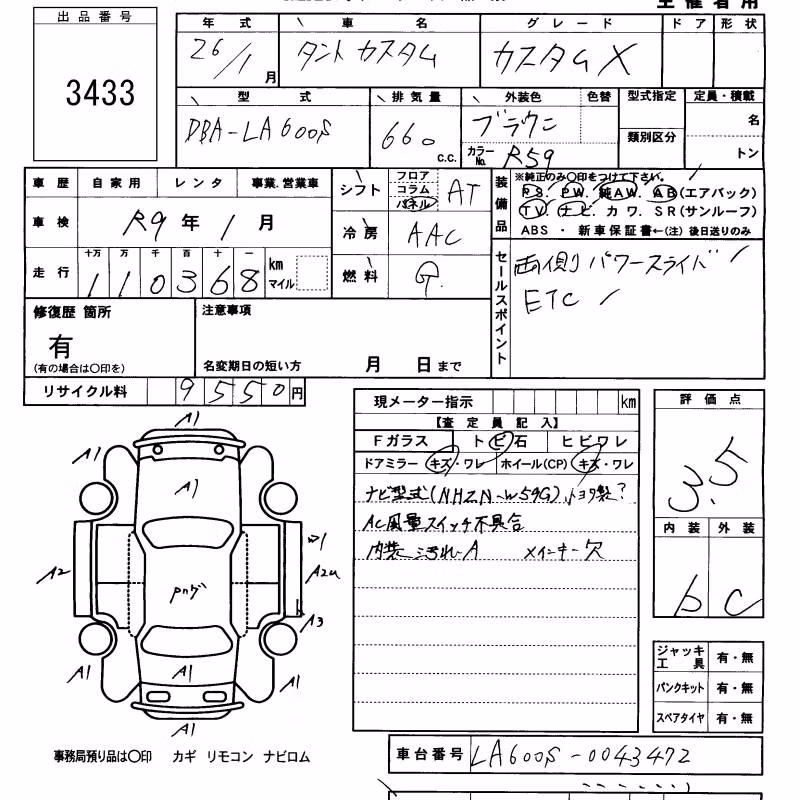 主催者用
出品番号
3433
年式 車名 グレード ドア 形状
26/1月 タント カスタム カスタム X
型式 排気量 外装色 色替 型式指定 定員・積載
DBA-LA600S 660 c.c. ブラウン 類別区分 名
カラーNo. R59 トン
車歴 自家用 レンタ 事業.営業車
車検 R9年 1月
走行 十万 万 千 百 十 一
110368 km マイル
シフト フロア コラム パネル AT
冷房 AAC
燃料 G
装備品 ※純正のみ○印をつけて下さい。
PS. PW. 純AW. AB(エアバック)
TV. ナビ. カワ. SR(サンルーフ)
ABS ・ 新車保証書←(注) 後日送りのみ
セールスポイント
両側パワースライド
ETC
修復歴 箇所
有
(有の場合は○印を)
注意事項
名変期日の短い方 月 日まで
リサイクル料 9550円
現メーター指示 km
【査定員記入】
Fガラス トビ石 ヒビワレ
ドアミラー キズ・ワレ ホイール(CP) キズ・ワレ
ナビ型式(NHZN-W59G)トヨタ製?
AC風量スイッチ不具合
内装 汚れA メインキー欠
評価点
3.5
内装 外装
b C
ジャッキ 工具 有・無
パンクキット 有・無
スペアタイヤ 有・無
A1
A1
A1
A1
W1
A2
A2u
A3
A1
A1
A1
A1
事務局預り品は○印 カギ リモコン ナビロム
車台番号 LA600S-0043472